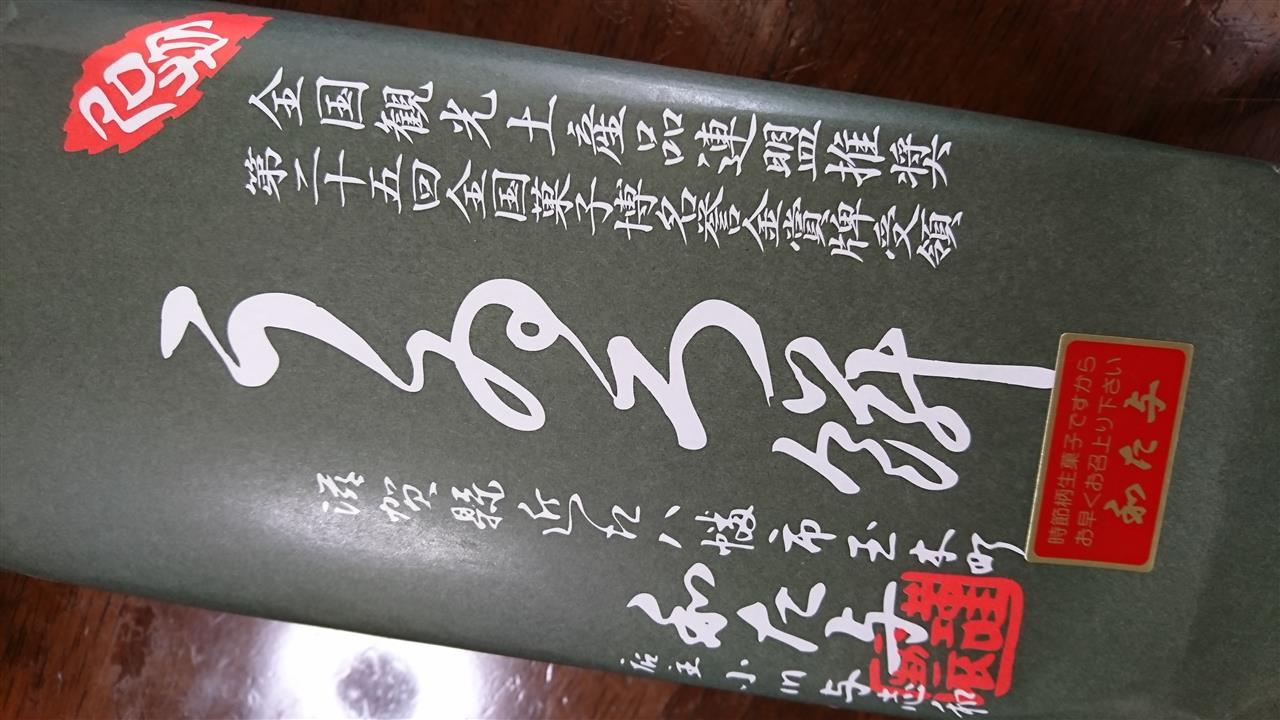 名物
全国観光土産品連盟推奨
第二十五回全国菓子博名誉金賞牌受領
うゐろ餅
滋賀縣近江八幡市玉木町
和た与
店主小川与志和
時節柄生菓子ですから
お早くお召上り下さい
和た与